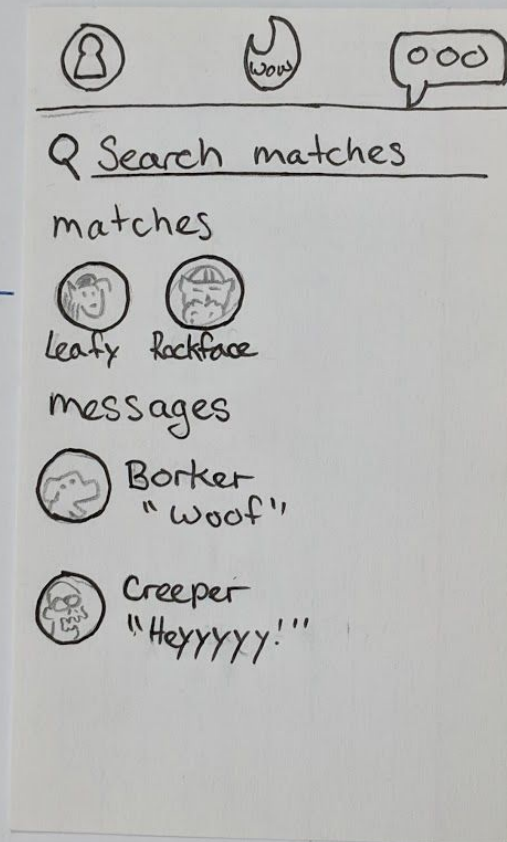 WoW
Search matches
matches
Leafy Rockface
messages
Borker
"Woof"
Creeper
"Heyyyyy!"